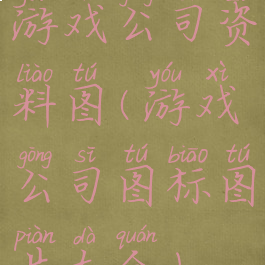 游戏公司资
liào tú yóu xì
料图(游戏
gōng sī tú biāo tú
公司图标图
piàn dà quán
片大全)